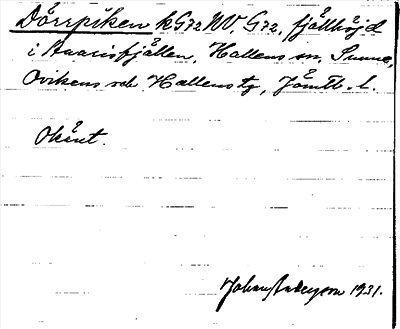 Dörrpiken kG72NV, G72, fjällhöjd
i Anarisfjällen, Hallens sn, Sunne,
Ovikens och Hallens tg, Jämtl. l.
Okänt.
Johan Anderson 1931.